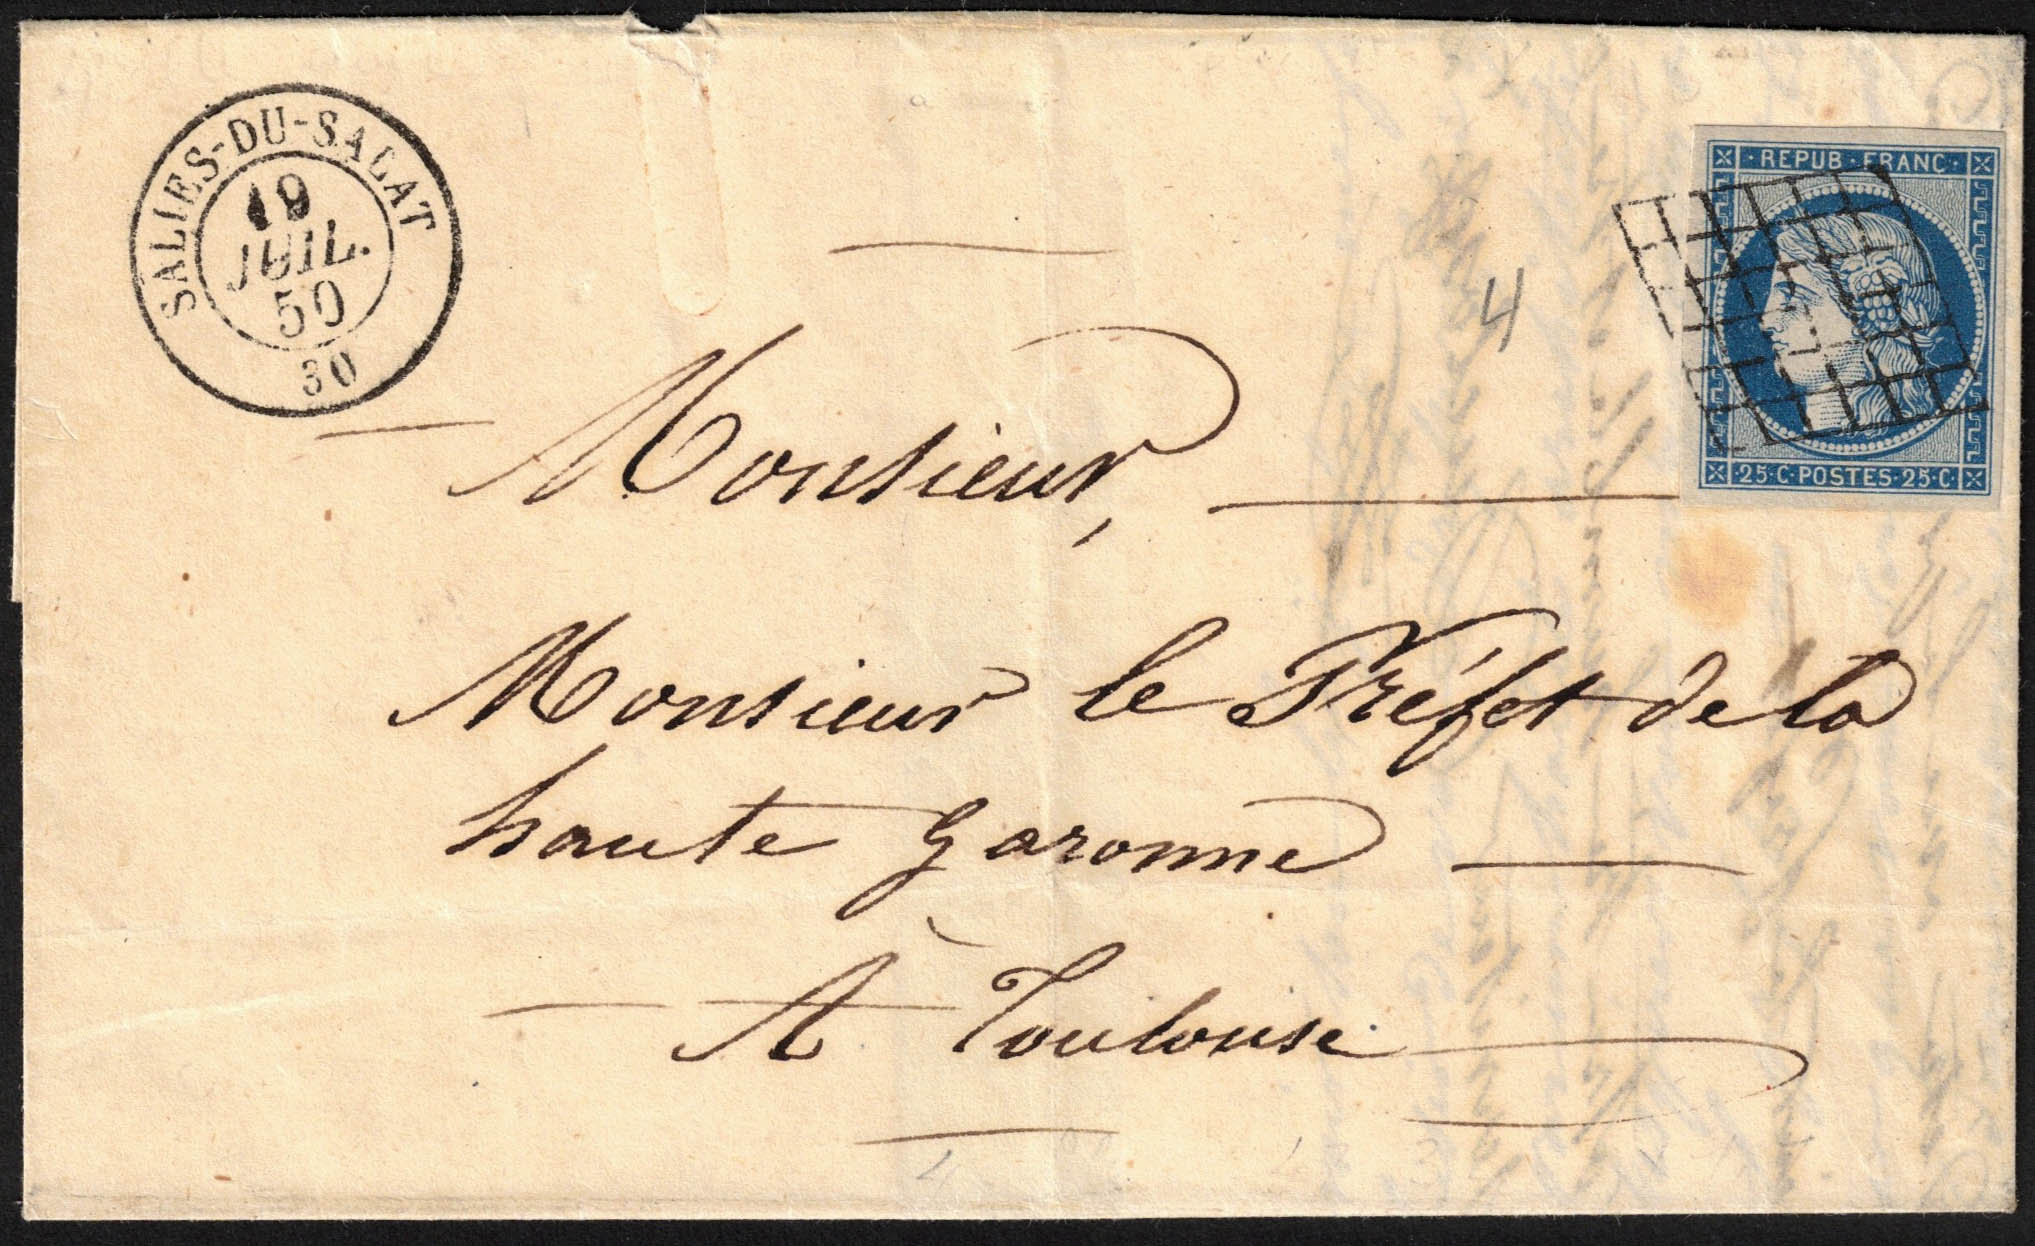 SALIES-DU-SALAT
19
JUIL.
50
30
REPUB·FRANC·
25·C·POSTES·25·C·
4
Monsieur,
Monsieur le Préfet de la
haute Garonne
À Toulouse